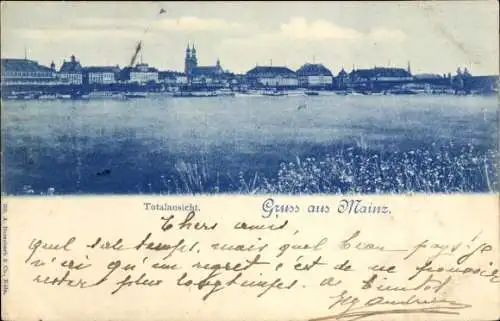 Totalansicht.
Gruss aus Mainz.
Chers amis
Quel sale temps, mais quel beau pays! Je
n'ai qu'un regret c'est de ne pouvoir
rester plus longtemps. à bientôt